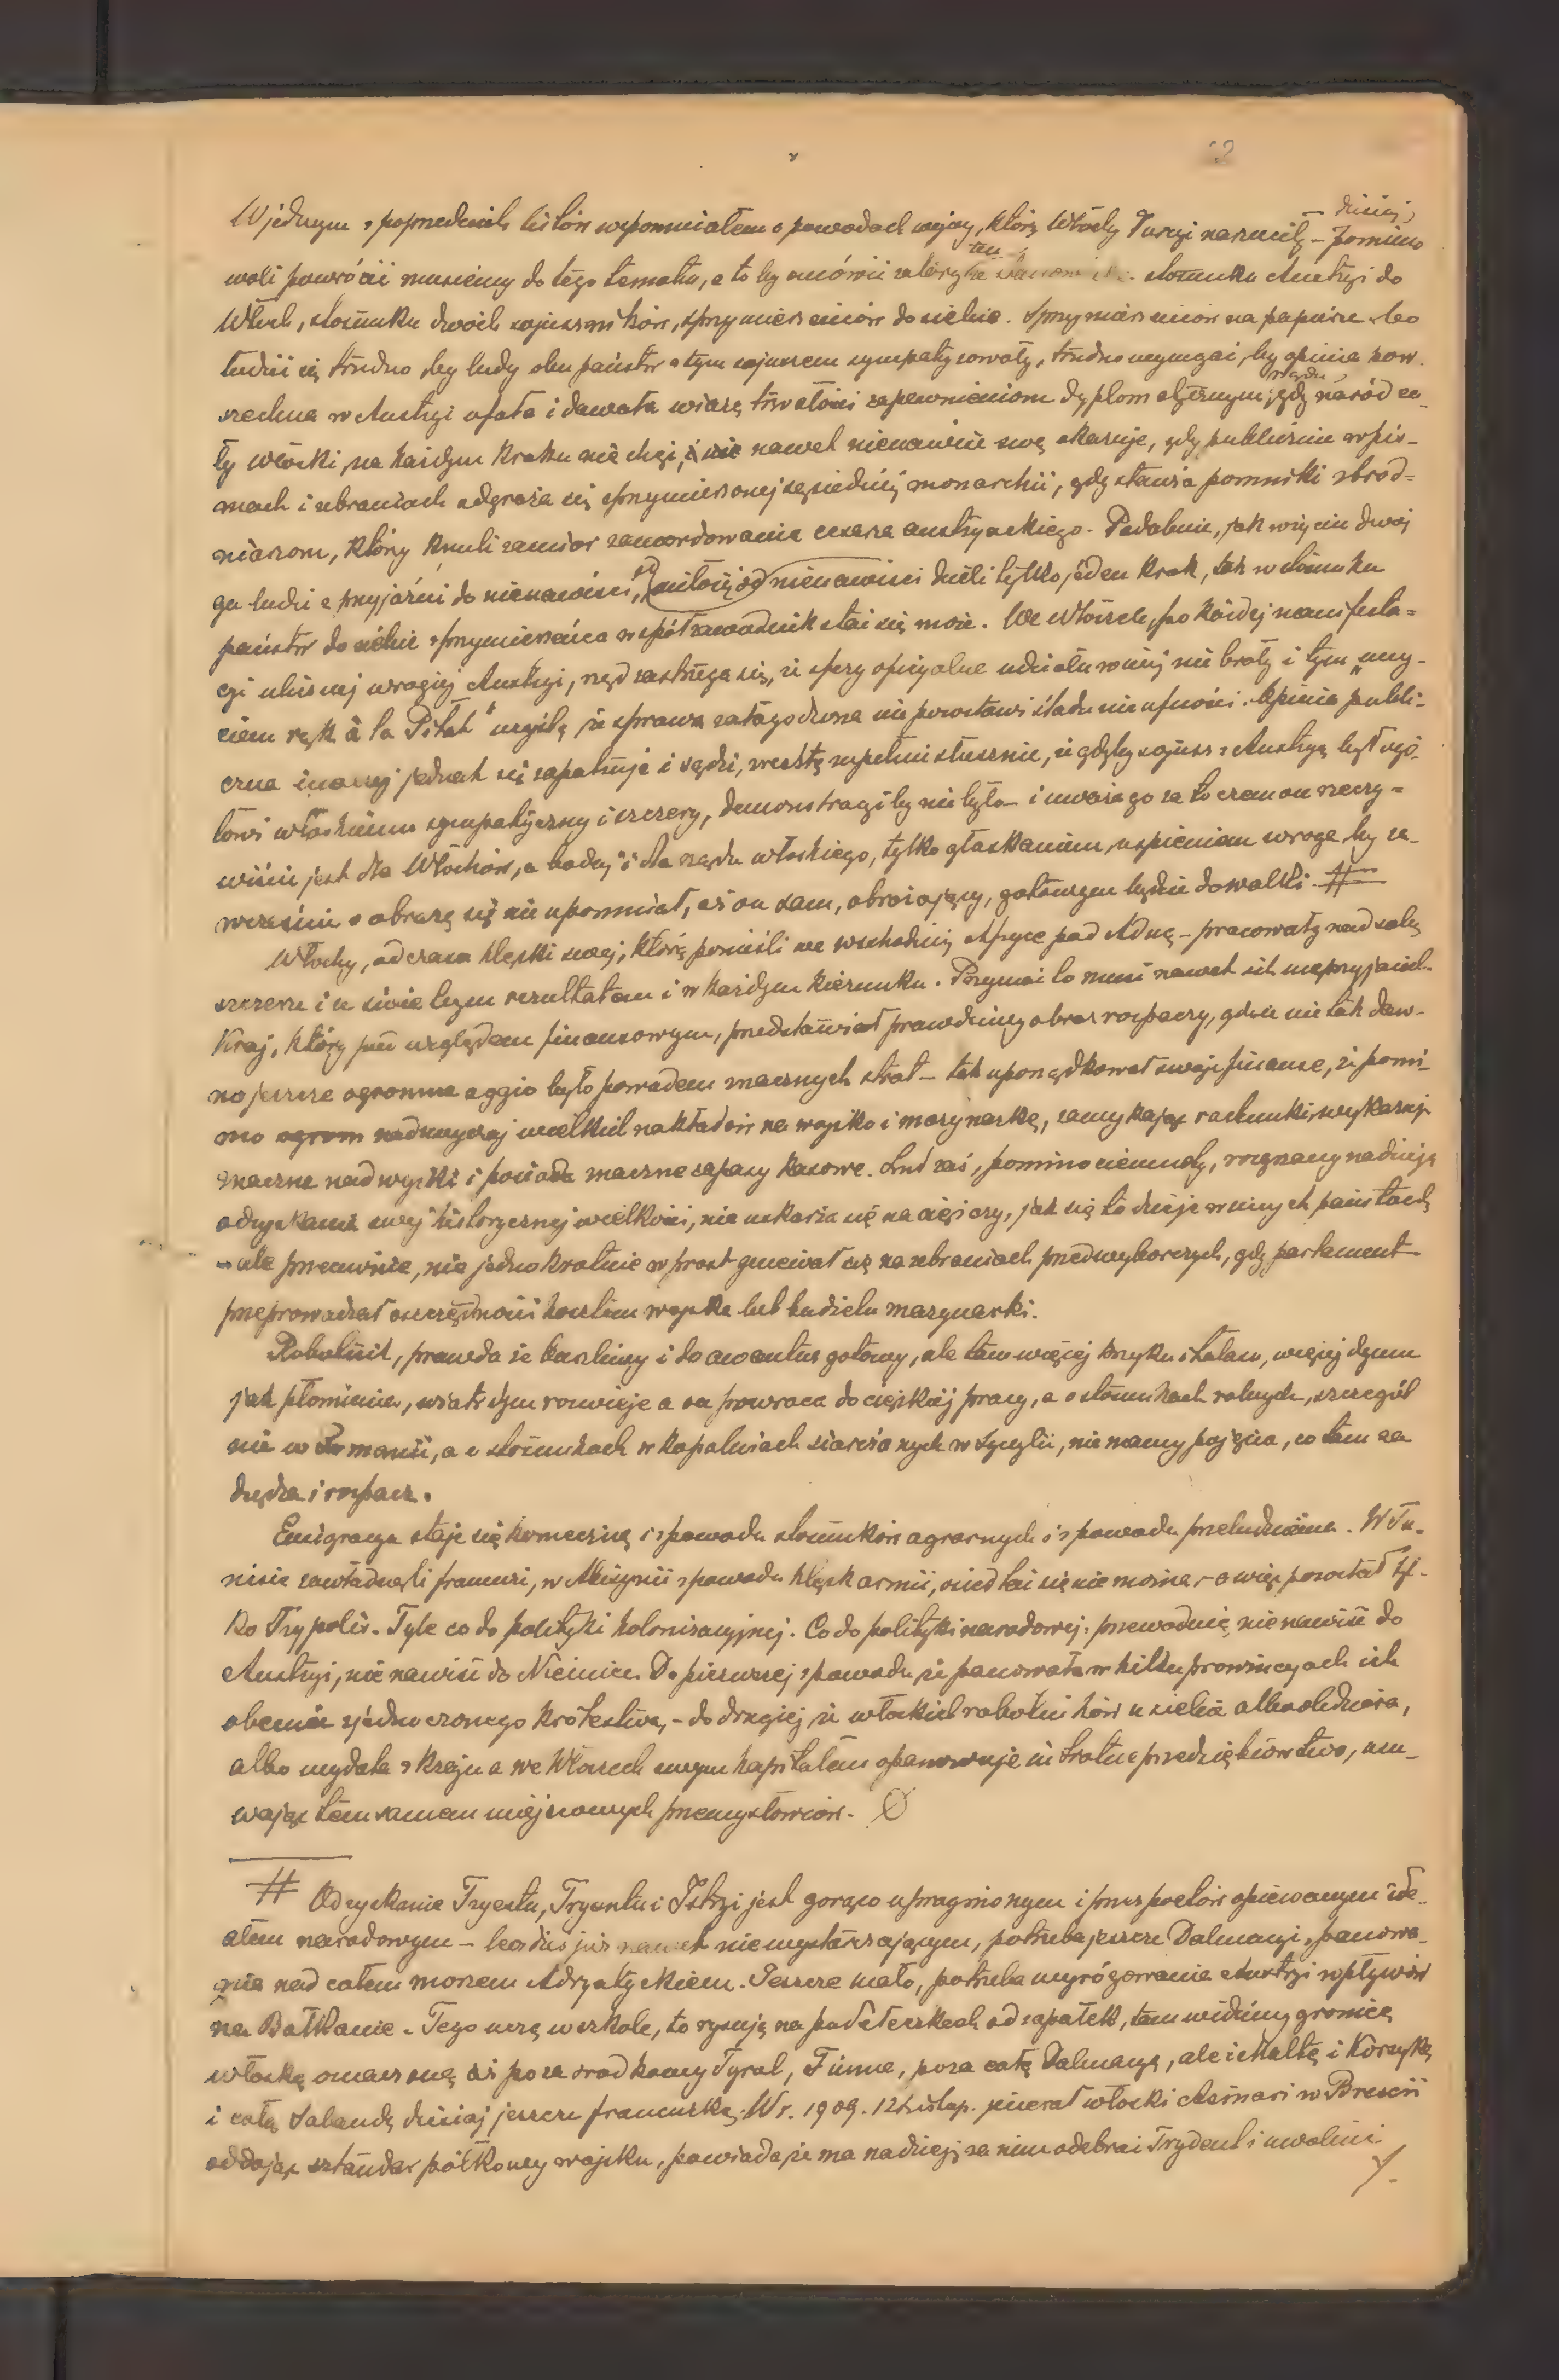 W jednym z poprzednich listów wspomniałem o powodach wojny, którą Włochy Turcyi narzuciły – dzisiaj, pomimo
woli powrócić musimy do tego tematu, a to by omówić ten stosunku Austryi do
Włoch, stosunku dwóch sojuszników, sprzymierzeńców do siebie. Sprzymierzeńców na papierze bo
łudzić się trudno, by ludy obu państw z tym sojuszem sympatyzowały, trudno wymagać, by opinia pow-
szechna w Austryi ufała i dawała wiarę trwałości zapewnieniom dyplomatycznym rządu, gdy naród ca-
ły włoski, na każdym kroku niechęć, nawet nienawiść swą okazuje, gdy publicznie w pis-
mach i zebraniach odgraża się sprzymierzonej sąsiedniej monarchii, gdy stawia pomniki zbrod-
niarzom, którzy knuli zamiar zamordowania cesarza austryackiego. Podobnie, jak w życiu dwoj
ga ludzi z przyjaźni do nienawiści, miłość od nienawiści dzieli tylko jeden krok, tak w stosunku
państw do siebie z sprzymierzeńca współzawodnik stać się może. We Włoszech, po każdej manifesta-
cyi ulicznej wrogiej Austryi, rząd zastrzega się, że sfery oficyalne udziału w niej nie brały i tym „umy-
ciem rąk à la Piłat" myślą że sprawa załagodzona nie pozostawi śladu nieufności. Opinia publi-
czna inaczej jednak się zapatruje i sądzi, zresztą zupełnie słusznie, że gdyby sojusz z Austryą był ogó-
łowi włoskiemu sympatyczny i szczery, demonstracyi by nie było – i uważa go za to czem on rzeczy-
wiście jest dla Włochów, a bodaj i dla rządu włoskiego, tylko głaskaniem, uspieniem wroga, by za-
wcześnie o obrazę się nie upomniał, aż on sam, obrażający, gotowym będzie do walki. #
Włochy, od czasu klęski swej, którą ponieśli we wschodniej Afryce pod Aduą – pracowały nad sobą
szczerze i ze świetnym rezultatem i w każdym kierunku. Przyznać to musi nawet ich nieprzyjaciel.
Kraj, który pod względem finansowym, przedstawiał prawdziwy obraz rozpaczy, gdzie nie tak daw-
no jeszcze ogromne aggio było powodem znacznych strat – tak uporządkował swoje finanse, że pomi-
mo ogrom nadzwyczaj wielkich nakładów na wojsko i marynarkę, zamykając rachunki, wykazuje
znaczne nadwyżki i posiada znaczne zapasy kasowe. Lud zaś, pomimo ciemnoty, rozgrzany nadzieją
odzyskania swej historycznej wielkości, nie uskarża się na ciężary, jak się to dzieje w innych państwach
– ale przeciwnie, nie jednokrotnie wprost gniewał się na zebraniach przedwyborczych, gdy parlament
przeprowadzał oszczędności kosztem wojska lub budżetu marynarki.
Robotnik, prawda że burzliwy i do awantur gotowy, ale tam więcej krzyku i hałasu, więcej dymu
jak płomienia, wiatr dym rozwieje a on powraca do ciężkiej pracy, a o stosunkach rolnych, szczegól
nie w Romanii, a o stosunkach w kopalniach siarczanych w Sycylii, nie mamy pojęcia, co tam za
nędza i rozpacz.
Emigracya staje się konieczną i z powodu stosunków agrarnych i z powodu przeludnienia. W Tu-
nisie zawładnęli francuzi, w Abisynii z powodu klęsk armii, osiedlać się nie można – a więc pozostał tyl-
ko Trypolis. Tyle co do polityki kolonizacyjnej. Co do polityki narodowej: przewodnią, nienawiść do
Austryi, nienawiść do Niemiec. Do pierwszej z powodu że panowała w kilku prowincyach ich
obecnie zjednoczonego królestwa, – do drugiej że włoskich robotników u siebie albo oblężnia,
albo wydala z kraju a we Włoszech swym kapitałem opanowuje intratne przedsiębiorstwa, usu-
wając tem samem miejscowych przemysłowców. Ø
# Odzyskanie Tryestu, Tryentu i Istryi jest gorąco upragnionym i przez poetów opiewanym ide-
ałem narodowym – bo dziś już nawet niewystarczającym, potrzeba jeszcze Dalmacyi, panowa-
nia nad całem morzem Adryatyckiem. Jeszcze mało, potrzeba wyrugowania Austryi wpływów
na Bałkanie. Tego uczą w szkole, to rysują na pudełeczkach od zapałek, tam widzimy granicę
włoską oznaczoną aż poza środkowy Tyrol, Fiume, poza całą Dalmacyą, ale i Maltę i Korsykę
i całą Sabaudę dzisiaj jeszcze francuską. W r. 1909. 12 listop. jenerał włoski Asinari w Brescii
oddając sztandar pułkowy wojsku, powiada że ma nadzieję za nim odebrać Trydent i uwolnić